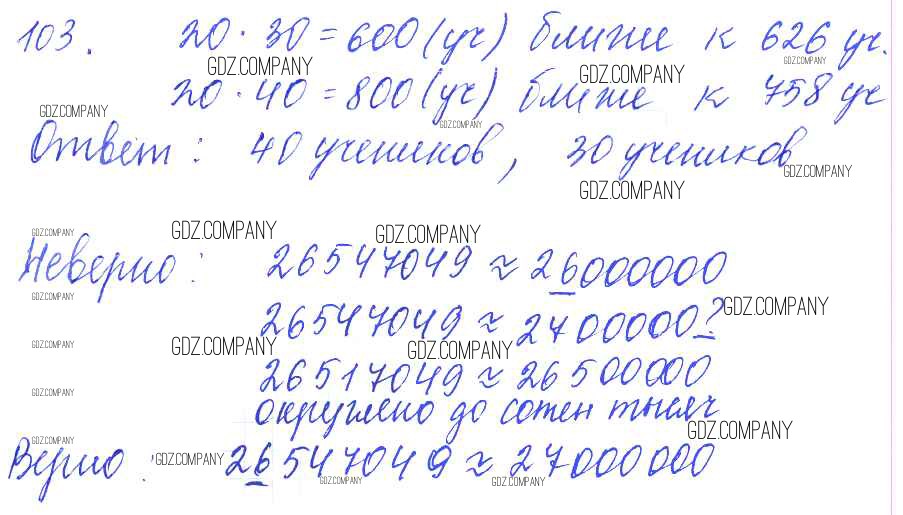 103. 20 · 30 = 600 (уч) ближе к 626 уч.
GDZ.COMPANY
GDZ.COMPANY
GDZ.COMPANY
20 · 40 = 800 (уч) ближе к 758 уч
GDZ.COMPANY
GDZ.COMPANY
Ответ: 40 учеников, 30 учеников
GDZ.COMPANY
GDZ.COMPANY
GDZ.COMPANY
GDZ.COMPANY
GDZ.COMPANY
Неверно: 26547049 ≈ 26000000
GDZ.COMPANY
GDZ.COMPANY
26547049 ≈ 2700000?
GDZ.COMPANY
GDZ.COMPANY
GDZ.COMPANY
26517049 ≈ 26500000
GDZ.COMPANY
округлено до сотен тысяч
GDZ.COMPANY
GDZ.COMPANY
Верно: 26547049 ≈ 27000000
GDZ.COMPANY
GDZ.COMPANY
GDZ.COMPANY